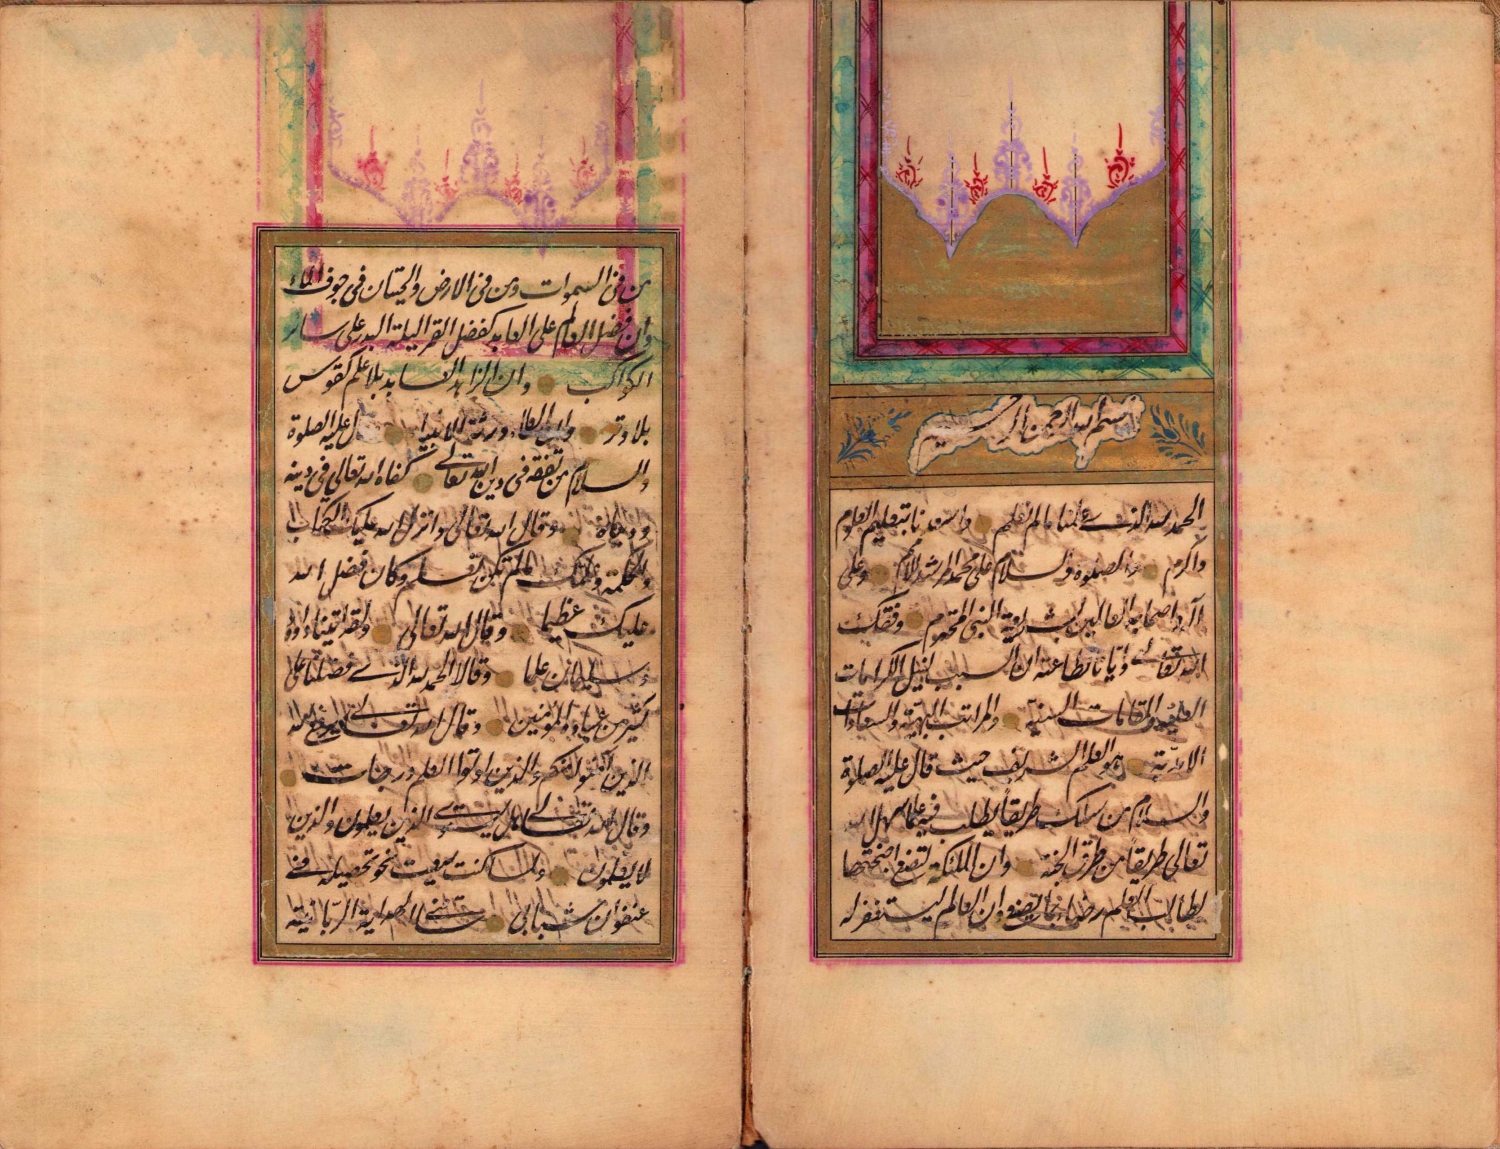 بسم الله الرحمن الرحيم
الحمد لله الذي علمنا ما لم نعلم واسعدنا بتعليم العلوم
واكرم والصلوة والسلام على محمد المرشد الامم وعلى
آله واصحابه العالمين بشريعة النبي المحترم وفقك
الله تعالى وايانا بطاعته ان السبب لنيل الكرامات
العلية والمقامات السنية والمراتب البهية والسعادات
الابدية هو العلم الشريف حيث قال عليه الصلاة
والسلام من سلك طريقا يطلب فيه علما سهل الله
تعالى طريقا من طرق الجنة وان الملئكة لتضع اجنحتها
لطالب العلم رضاء بما يصنع وان العالم ليستغفر له
من في السموات ومن في الارض والحيتان في جوف الماء
وان فضل العالم على العابد كفضل القمر ليلة البدر على سائر
الكواكب وان الزاهد العابد بلا علم كقوس
بلا وتر وان العلماء ورثة الانبياء قال عليه الصلوة
والسلام من تفقه في دين الله تعالى كفاه الله تعالى في دينه
ودنياه وقال الله تعالى وانزل الله عليك الكتاب
والحكمة وعلمك ما لم تكن تعلم وكان فضل الله
عليك عظيما وقال الله تعالى ولقد اتينا داود
وسليمان علما وقالا الحمد لله الذي فضلنا على
كثير من عباده المؤمنين وقال الله تعالى يرفع الله
الذين آمنوا منكم والذين اوتوا العلم درجات
وقال الله تعالى هل يستوي الذين يعلمون والذين
لا يعلمون ولما كنت سعيت نحو تحصيله في
عنفوان شبابي الهداية الربانية